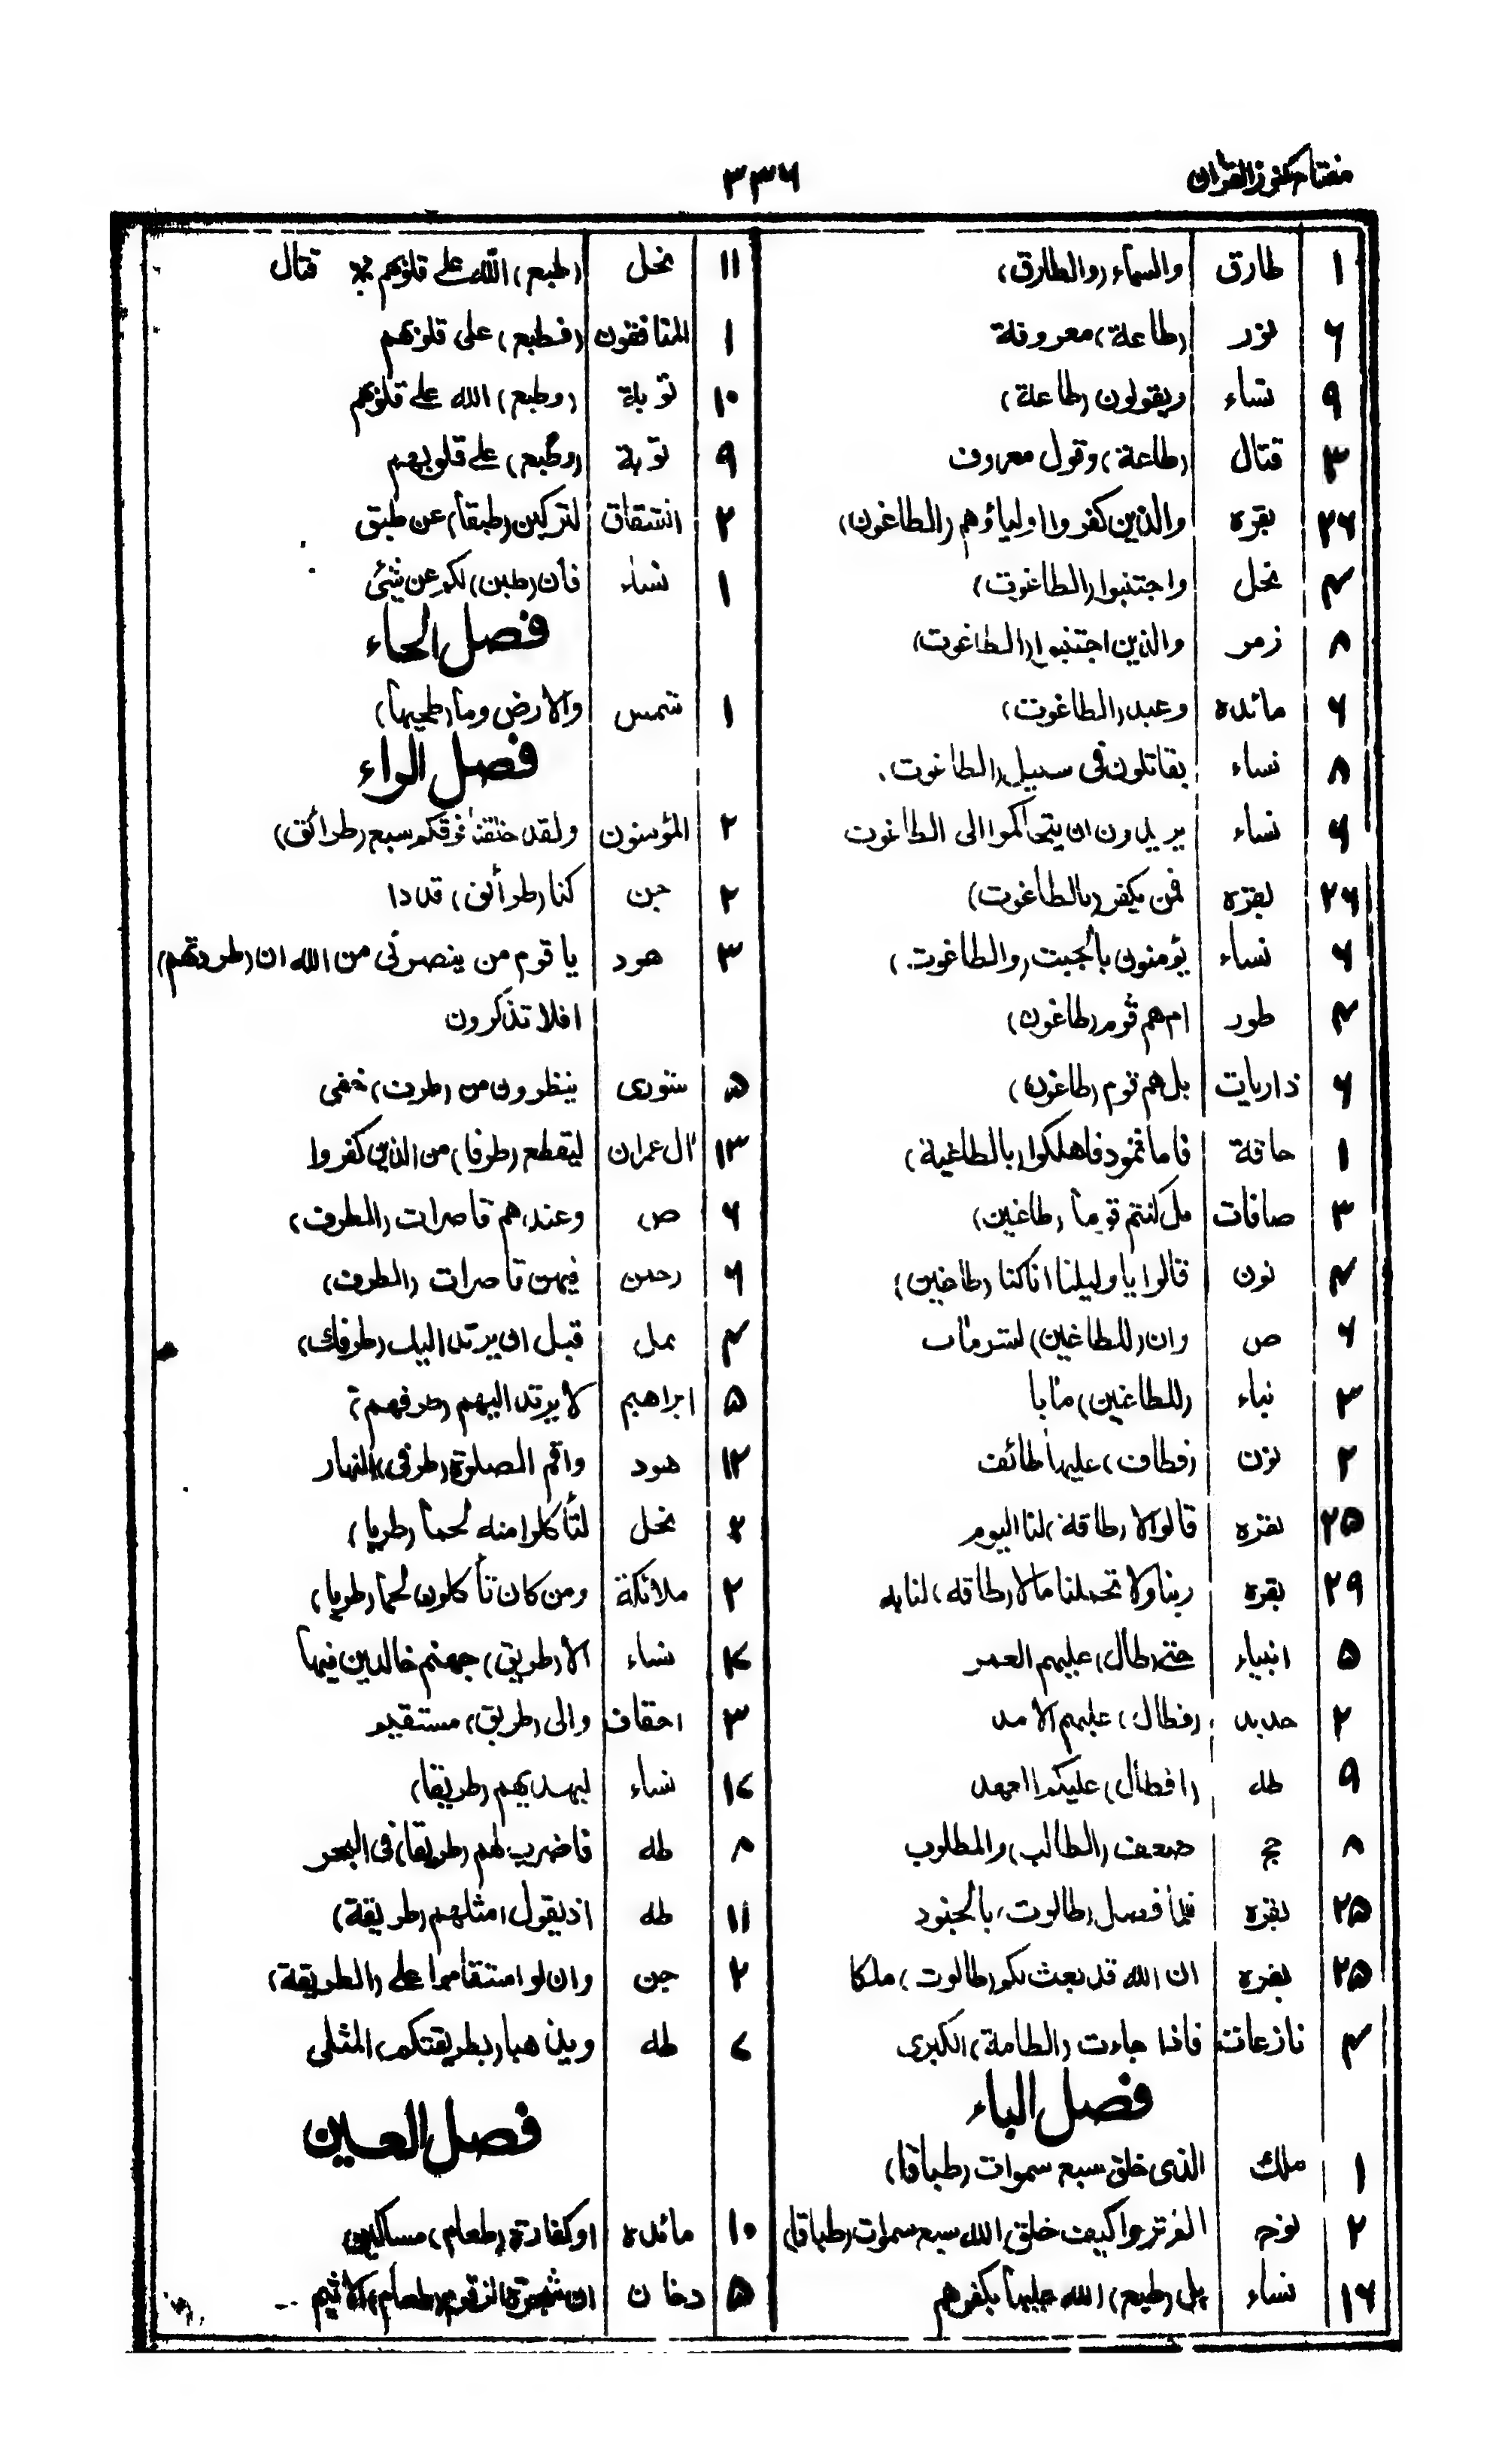 مفتاح كنوز القرآن
٣٣٦
١ طارق والسماء (والطارق)
٦ نور (طاعة) معروفة
٩ نساء ويقولون (طاعة)
٣ قتال (طاعة) وقول معروف
٢٦ بقره والذين كفروا اولياؤهم (الطاغوت)
٤ نحل واجتنبوا (الطاغوت)
٨ زمر والذين اجتنبوا (الطاغوت)
٦ مائده وعبد (الطاغوت)
٨ نساء يقاتلون فى سبيل (الطاغوت)
٦ نساء يريدون ان يتحاكموا الى الطاغوت
٢٦ بقره فمن يكفر (بالطاغوت)
٦ نساء يؤمنون بالجبت (والطاغوت)
٤ طور ام هم قوم (طاغون)
٦ ذاريات بل هم قوم (طاغون)
١ حاقة فاما ثمود فاهلكوا (بالطاغية)
٣ صافات بل كنتم قوما (طاغين)
٤ نون قالوا يا وليلنا انا كنا (طاغين)
٦ ص وان (للطاغين) لشر مآب
٣ نباء (للطاغين) مآبا
٢ نون (فطاف) عليها طائف
٢٥ بقره قالوا لا (طاقة) لنا اليوم
٢٩ بقره ربنا ولا تحملنا ما لا (طاقه) لنا به
٥ انبياء حتى (طال) عليهم العمر
٢ حديد (فطال) عليهم الامد
٩ طه (افطال) عليكم العهد
٨ حج ضعف (الطالب) والمطلوب
٢٥ بقره فلما فصل (طالوت) بالجنود
٢٥ بقره ان الله قد بعث لكم (طالوت) ملكا
٤ نازعات فاذا جاءت (الطامة) الكبرى
فصل الباء
١ ملك الذى خلق سبع سموات (طباقا)
٢ نوح الم تروا كيف خلق الله سبع سموات (طباقا)
١٦ نساء بل (طبع) الله عليها بكفرهم
١١ نحل (طبع) الله على قلوبهم * قتال
١ المنافقون (فطبع) على قلوبهم
١٠ توبة (وطبع) الله على قلوبهم
٩ توبة (وطبع) على قلوبهم
٢ انشقاق لتركبن (طبقا) عن طبق
١ نساء فان (طبن) لكم عن شئ
فصل الحاء
١ شمس والارض وما (طحيها)
فصل الراء
٢ المؤمنون ولقد خلقنا فوقكم سبع (طرائق)
٢ جن كنا (طرائق) قددا
٣ هود يا قوم من ينصرنى من الله ان (طردتهم)
افلا تذكرون
٥ شورى ينظرون من (طرف) خفى
١٣ آل عمران ليقطع (طرفا) من الذين كفروا
٦ ص وعندهم قاصرات (الطرف)
٦ رحمن فيهن قاصرات (الطرف)
٤ نمل قبل ان يرتد اليك (طرفك)
٥ ابراهيم لا يرتد اليهم (طرفهم)
١٢ هود واقم الصلوة (طرفى) النهار
٢ نحل لتأكلوا منه لحما (طريا)
٢ ملائكة ومن كان تأكلون لحما (طريا)
نساء الا (طريق) جهنم خالدين فيها
٣ احقاف والى (طريق) مستقيم
نساء ليهديهم (طريقا)
٨ طه فاضرب لهم (طريقا) فى البحر
١١ طه اذ يقول امثلهم (طريقة)
٢ جن وان لو استقاموا على (الطريقة)
طه ويذهبا (بطريقتكم) المثلى
فصل العين
١٠ مائده او كفارة (طعام) مساكين
٥ دخان ان شجرة الزقوم (طعام) الاثيم